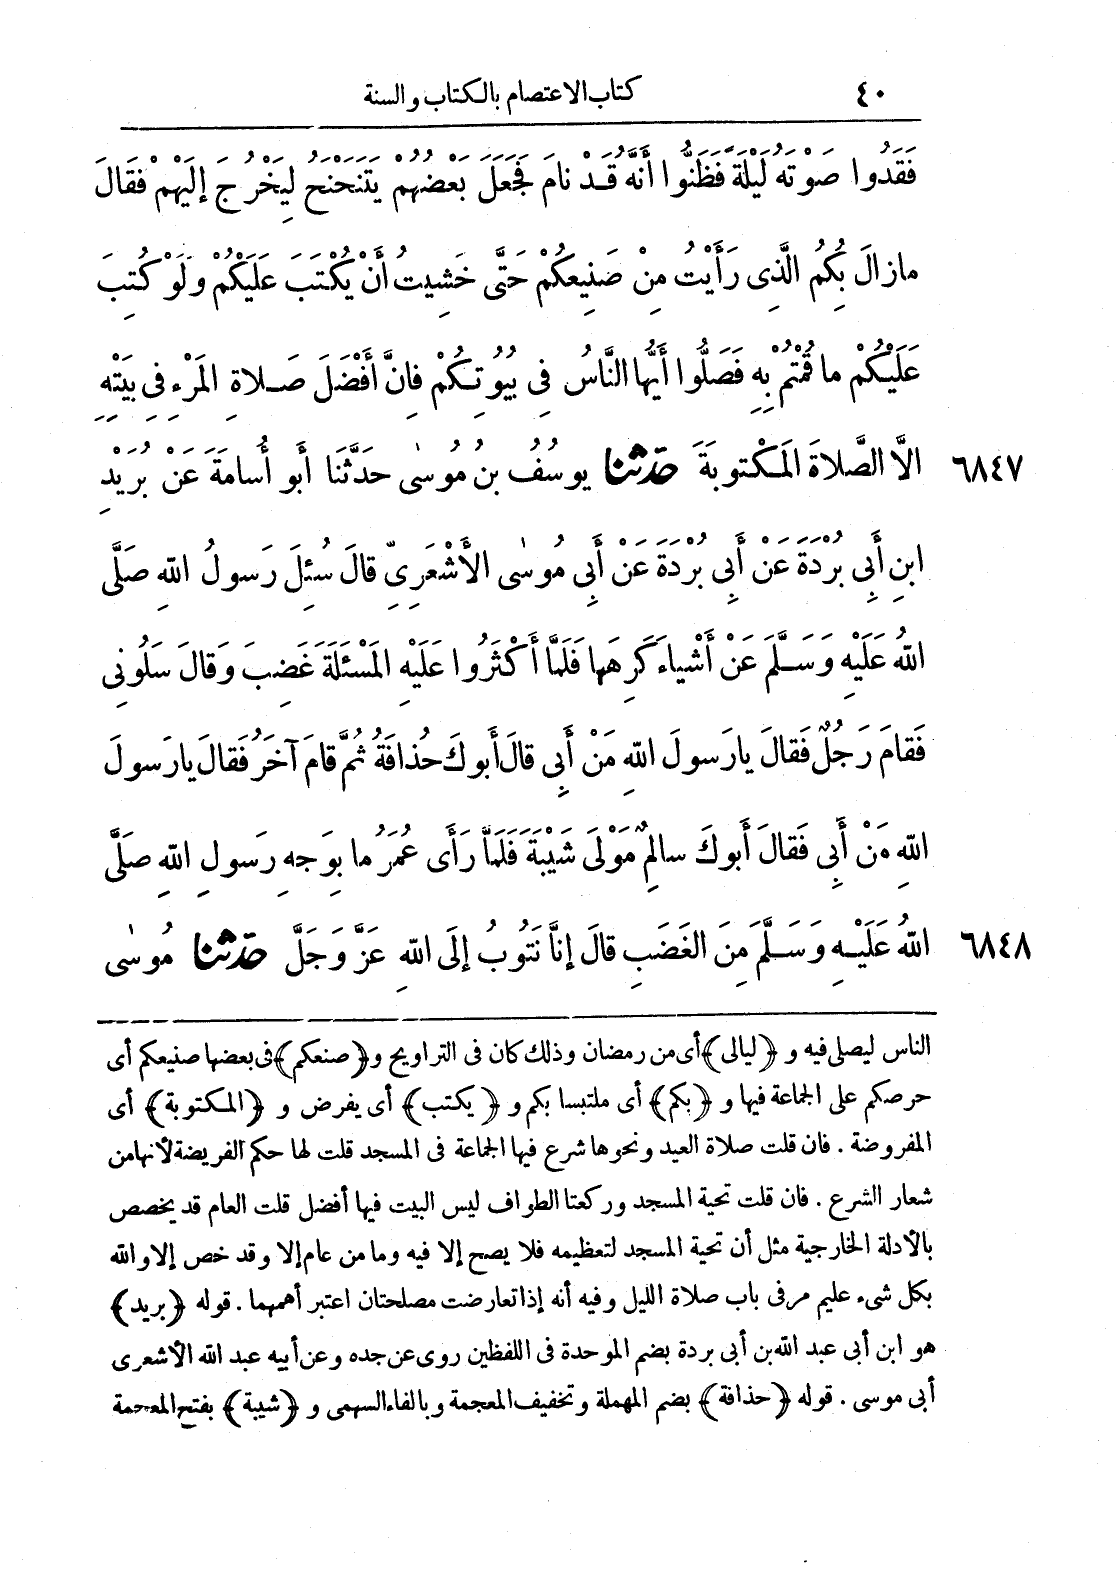 ٤٠ كتاب الاعتصام بالكتاب والسنة
فَقَدُوا صَوْتَهُ لَيْلَةً فَظَنُّوا أَنَّهُ قَدْ نامَ فَجَعَلَ بَعْضُهُمْ يَتَنَحْنَحُ لِيَخْرُجَ إِلَيْهِمْ فَقَالَ
مازالَ بِكُمُ الَّذِى رَأَيْتُ مِنْ صَنِيعِكُمْ حَتَّى خَشِيتُ أَنْ يُكْتَبَ عَلَيْكُمْ وَلَوْ كُتِبَ
عَلَيْكُمْ ما قُمْتُمْ بِهِ فَصَلُّوا أَيُّها النَّاسُ فِى بُيُوتِكُمْ فانَّ أَفْضَلَ صَلاةِ المَرْءِ فِى بَيْتِهِ
٦٨٤٧ الاَّ الصَّلاةَ المَكْتوبَةَ حَدَّثَنَا يوسُفُ بنُ مُوسَى حَدَّثَنَا أَبو أُسامَةَ عَنْ بُرَيْدِ
ابنِ أَبِى بُرْدَةَ عَنْ أَبِى بُرْدَةَ عَنْ أَبِى مُوسَى الأَشْعَرِىِّ قالَ سُئِلَ رَسولُ اللهِ صَلَّى
اللهُ عَلَيْهِ وَسَلَّمَ عَنْ أَشْياءَ كَرِهَها فَلَمَّا أَكْثَرُوا عَلَيْهِ المَسْئَلَةَ غَضِبَ وَقَالَ سَلُونِى
فَقامَ رَجُلٌ فَقالَ يارَسولَ اللهِ مَنْ أَبِى قالَ أَبوكَ حُذافَةُ ثُمَّ قامَ آخَرُ فَقالَ يارَسولَ
اللهِ مَنْ أَبِى فَقالَ أَبوكَ سالِمٌ مَوْلَى شَيْبَةَ فَلَمَّا رَأَى عُمَرُ ما بِوَجهِ رَسولِ اللهِ صَلَّى
٦٨٤٨ اللهُ عَلَيْهِ وَسَلَّمَ مِنَ الغَضَبِ قالَ إِنَّا نَتُوبُ إِلَى اللهِ عَزَّ وَجَلَّ حَدَّثَنَا مُوسَى
الناس ليصلى فيه و ﴿ليالى﴾ أى من رمضان وذلك كان فى التراويح و﴿صنعكم﴾ فى بعضها صنيعكم أى
حرصكم على الجماعة فيها و ﴿بكم﴾ أى ملتبسا بكم و ﴿يكتب﴾ أى يفرض و ﴿المكتوبة﴾ أى
المفروضة . فان قلت صلاة العيد ونحوها شرع فيها الجماعة فى المسجد قلت لها حكم الفريضة لأنها من
شعار الشرع . فان قلت تحية المسجد وركعتا الطواف ليس البيت فيها أفضل قلت العام قد يخصص
بالأدلة الخارجية مثل أن تحية المسجد لتعظيمه فلا يصح إلا فيه وما من عام إلا وقد خص إلا والله
بكل شىء عليم مر فى باب صلاة الليل وفيه أنه إذا تعارضت مصلحتان اعتبر أهمهما . قوله ﴿بريد﴾
هو ابن أبى عبد الله بن أبى بردة بضم الموحدة فى اللفظين روى عن جده وعن أبيه عبد الله الأشعرى
أبى موسى . قوله ﴿حذافة﴾ بضم المهملة وتخفيف المعجمة وبالفاء السهمى و ﴿شيبة﴾ بفتح المعجمة